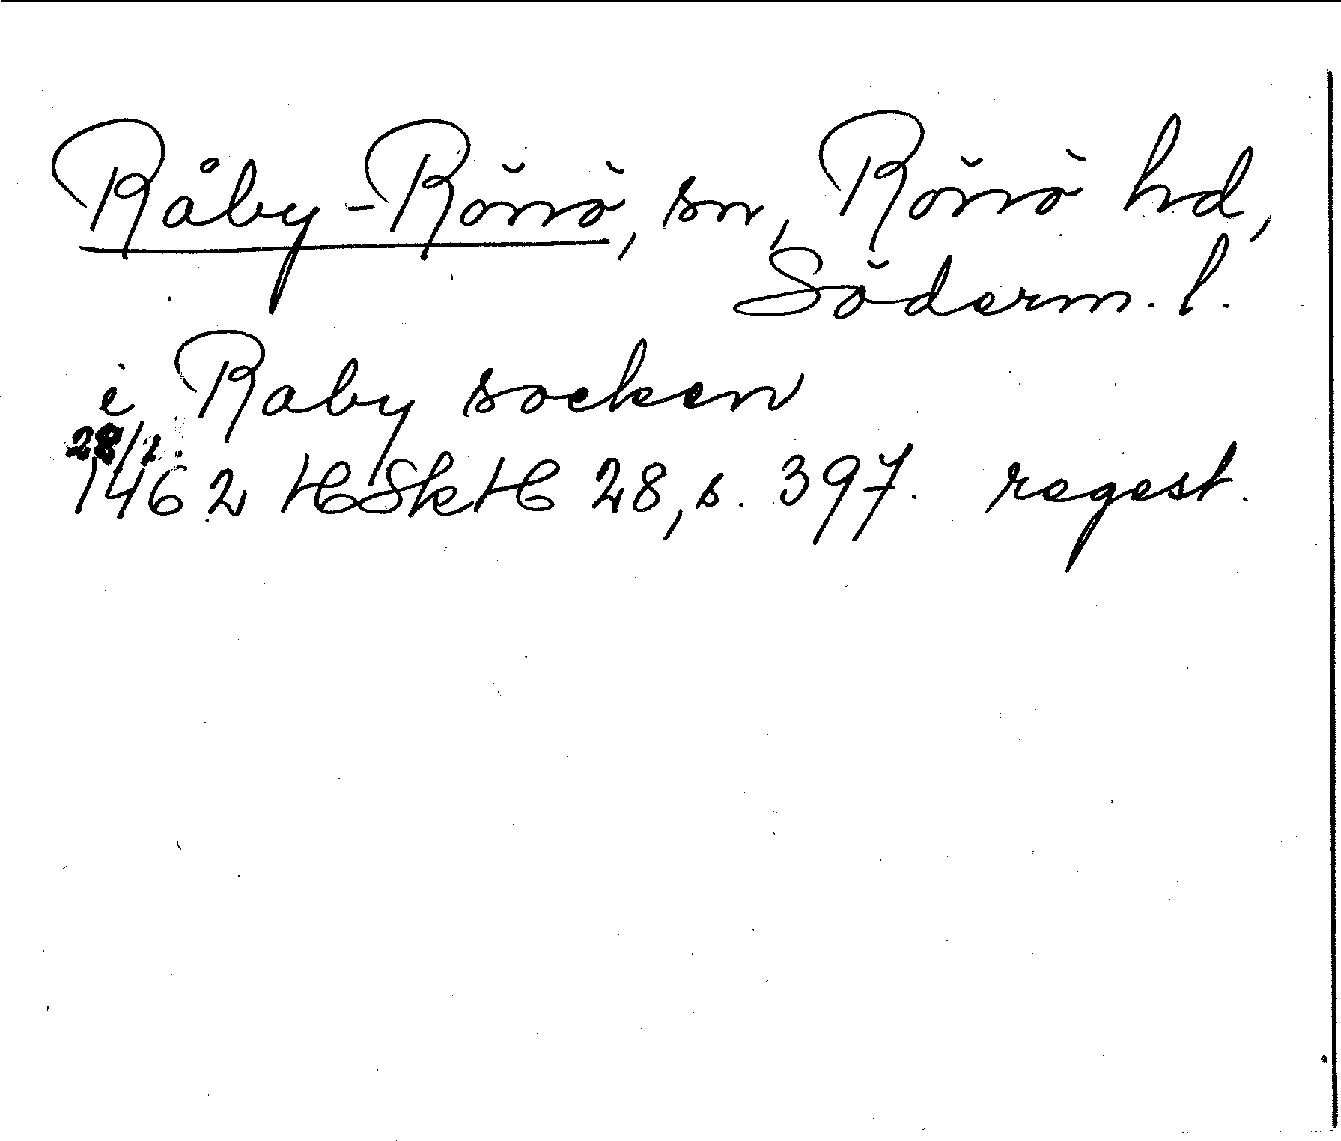 Råby-Rönö, sn, Rönö hd,
Söderm. l.
i Raby socken
28/1.
1462 HSkH 28, s. 397. regest.